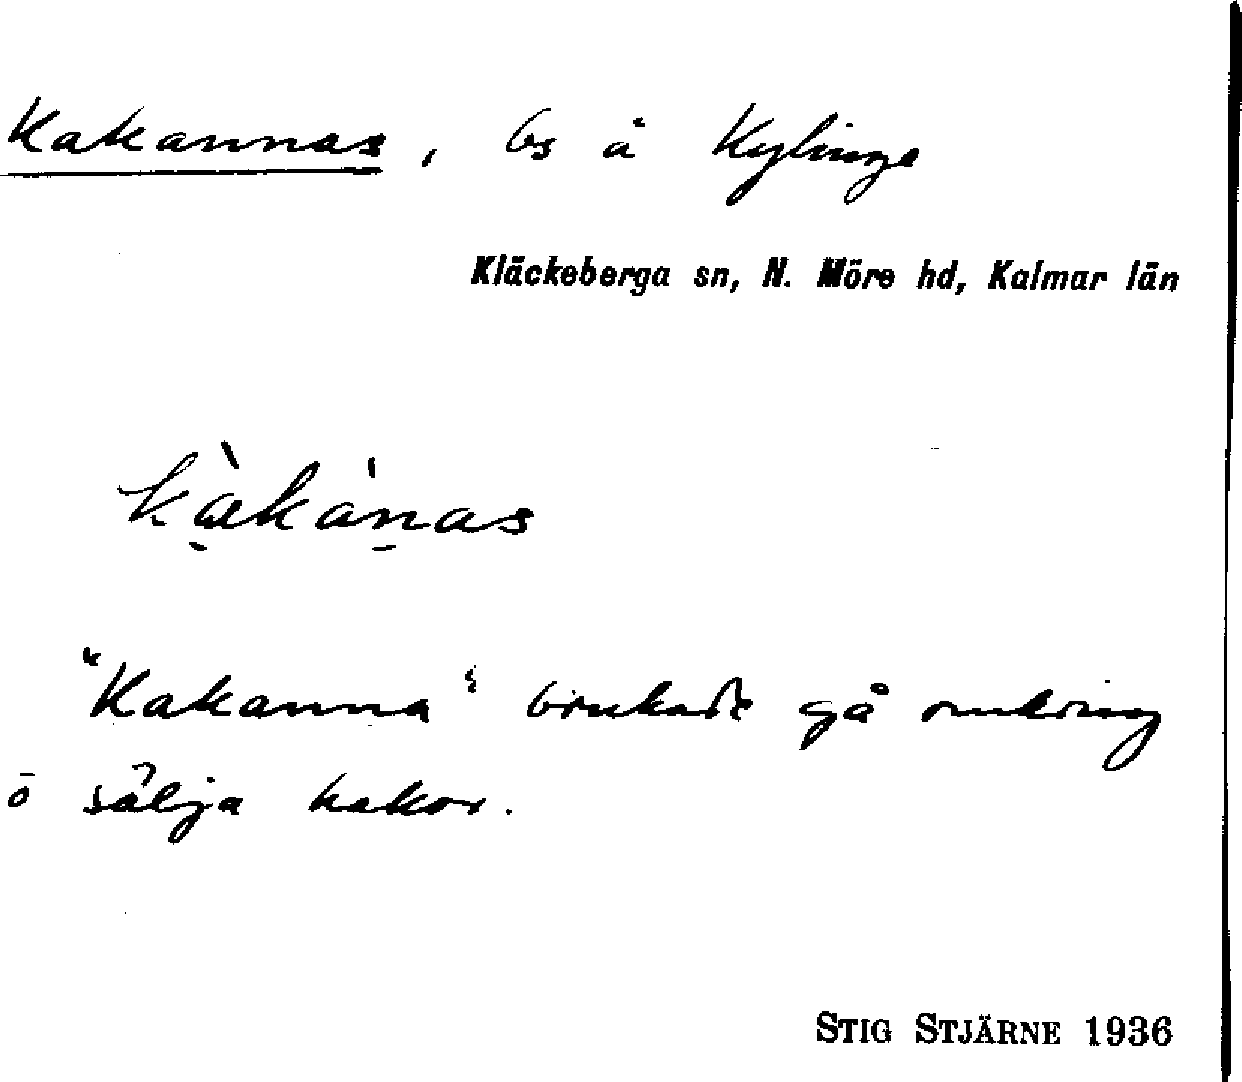 Kakannas, bs å Kylinge
Kläckeberga sn, N. Möre hd, Kalmar län
kàkánas
"Kakanna" brukade gå omkring
o sälja kakor.
STIG STJÄRNE 1936